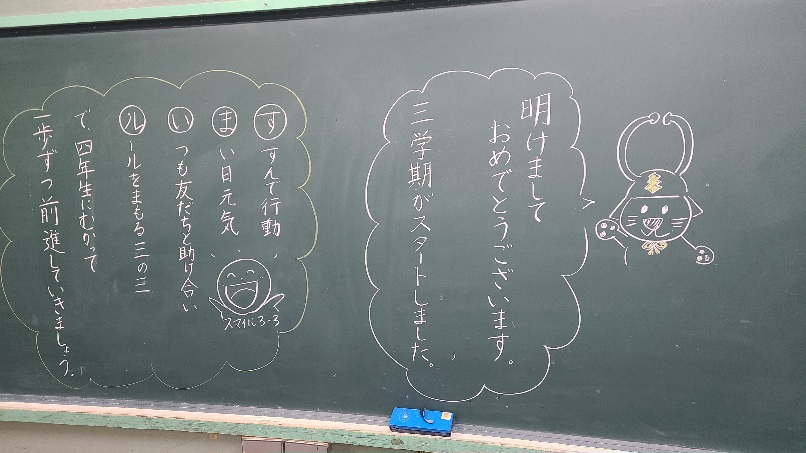 明けまして
おめでとうございます。
三学期がスタートしました。
すすんで行動
まい日元気
いつも友だちと助け合い
ルールをまもる三の三
で、四年生にむかって
一歩ずつ前進していきましょう。
スマイル3-3